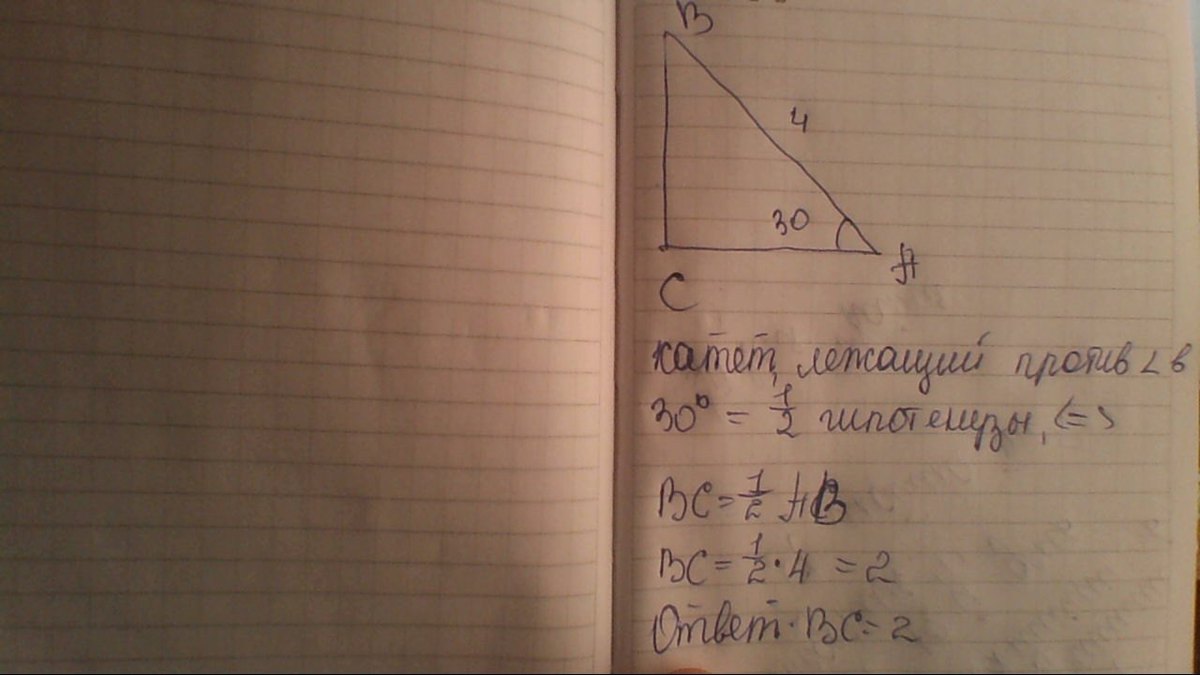 B
4
30
A
C
катет, лежащий против ∠ в
30° = 1/2 гипотенузы, <=>
BC = 1/2 AB
BC = 1/2 · 4 = 2
Ответ: BC = 2